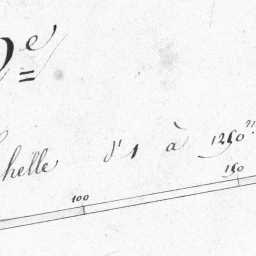 helle d'1 à 1250
100 150